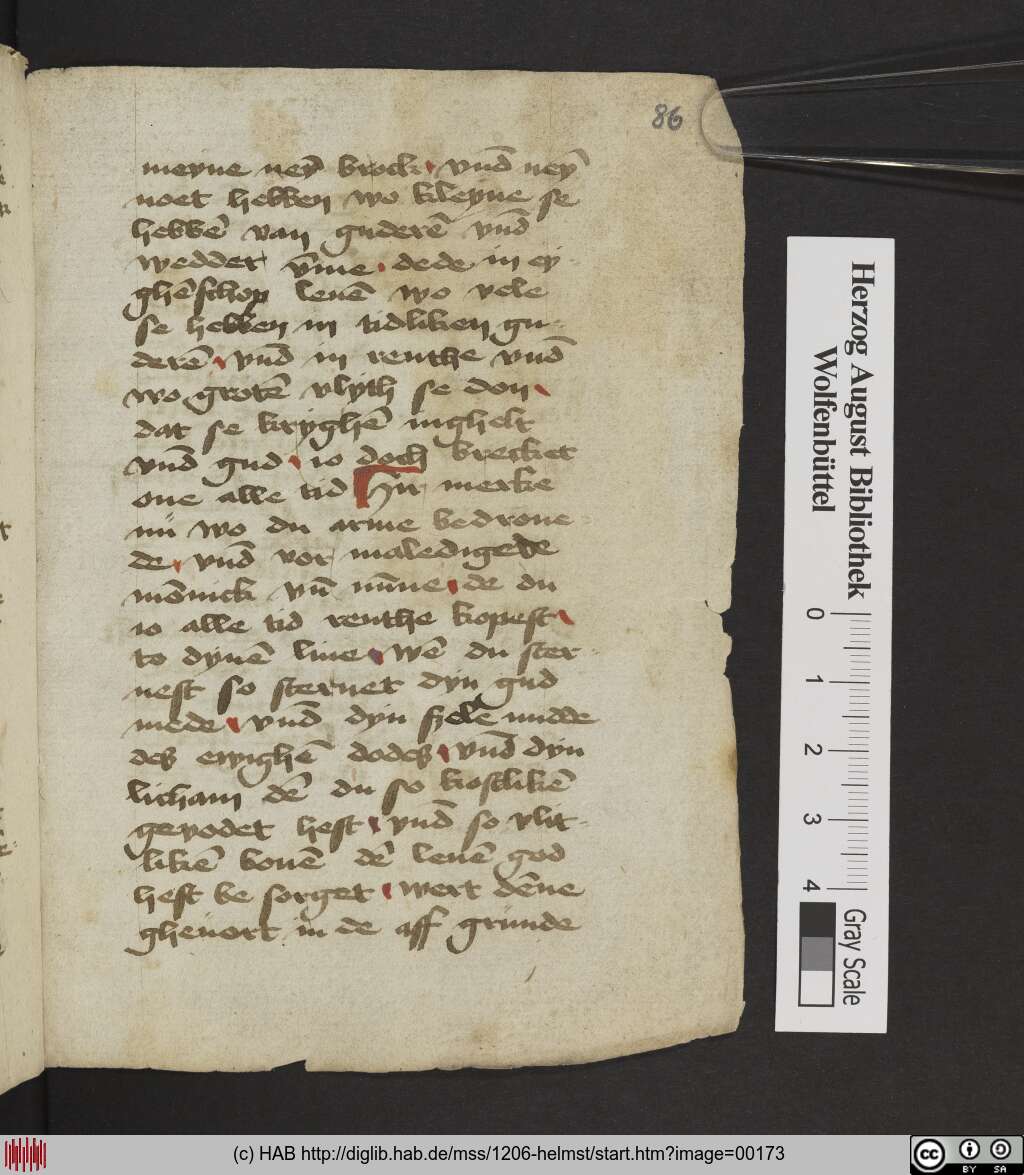 86
meyne neẏ brock vnd̄ neẏ
noet hebben wo kleyne se
hebbē van guderē vnd̄
wedder v̄me dede in ey
ghēschop leuē wo vele
se hebben in tidliken gu-
derē vnd̄ in renthe vnd̄
wo grotē vlyth se don
dat se kryghē inghelt
vnd̄ gud io doch brecket
one alle tid Hir merke
nu wo du arme bedroue
de vnd̄ vor maledigede
mōnick vn̄ nu̅ne de du
io alle tid renthe kopest
to dynē liue wē du ster-
uest so steruet dyn gud
mede vnd̄ dyn szele midde
des ewighē dodes vnd̄ dyn
licham dē du so kostlikē
gevodet hest vnd̄ so vlit-
likē bouē dē leuē god
hest be sorget wert dēne
gheuort in de aff grunde
Herzog August Bibliothek
Wolfenbüttel
0 1 2 3 4
Gray Scale
(c) HAB http://diglib.hab.de/mss/1206-helmst/start.htm?image=00173
cc BY SA